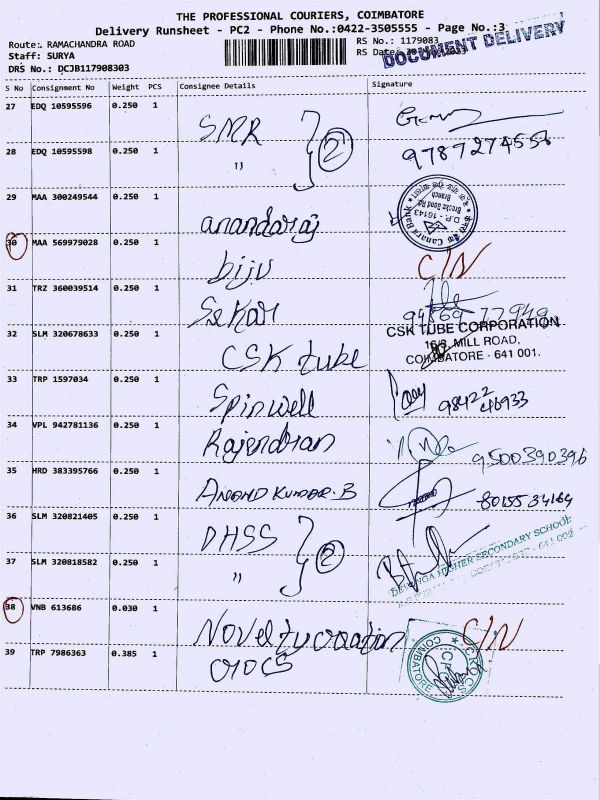 THE PROFESSIONAL COURIERS, COIMBATORE
Delivery Runsheet - PC2 - Phone No.:0422-3505555 - Page No.:3
Route:. RAMACHANDRA ROAD
RS No.: 1179083
Staff: SURYA
RS Date:
DOCUMENT DELIVERY
DRS No.: DCJB117908303
S No Consignment No Weight PCS Consignee Details Signature
27 EDQ 10595596 0.250 1 SMR
28 EDQ 10595598 0.250 1 " 2 9787274556
29 MAA 300249544 0.250 1 anandaraj
Canara Bank
D.P. - 16143
Brooke Bond Rd.
Branch
30 MAA 569979028 0.250 1 biju C/N
31 TRZ 360039514 0.250 1 Sekar
32 SLM 320678633 0.250 1 CSK tube
CSK TUBE CORPORATION
MILL ROAD,
COIMBATORE - 641 001.
33 TRP 1597034 0.250 1 Spinwell 98422 46933
34 VPL 942781136 0.250 1 Rajendran 9500390396
35 HRD 383395766 0.250 1 ANAND KUMAR.B 8015534164
36 SLM 320821405 0.250 1 DHSS
37 SLM 320818582 0.250 1 " 2
HIGHER SECONDARY SCHOOL
641 002
38 VNB 613686 0.030 1 Novelty creation C/N
39 TRP 7986363 0.385 1 CROCS
CROCS
COIMBATORE